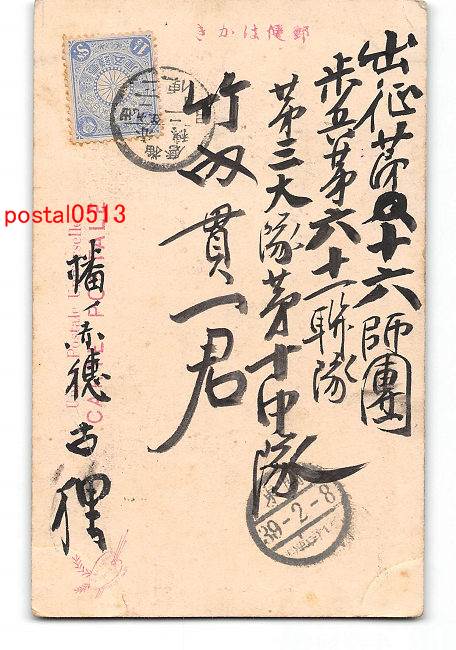 きかは便郵
出征第十六師團
歩兵第六十一聯隊
第三大隊第十中隊
竹内貫一君
播赤穂古狸
CARTE POSTALE
39-2-8
postal0513